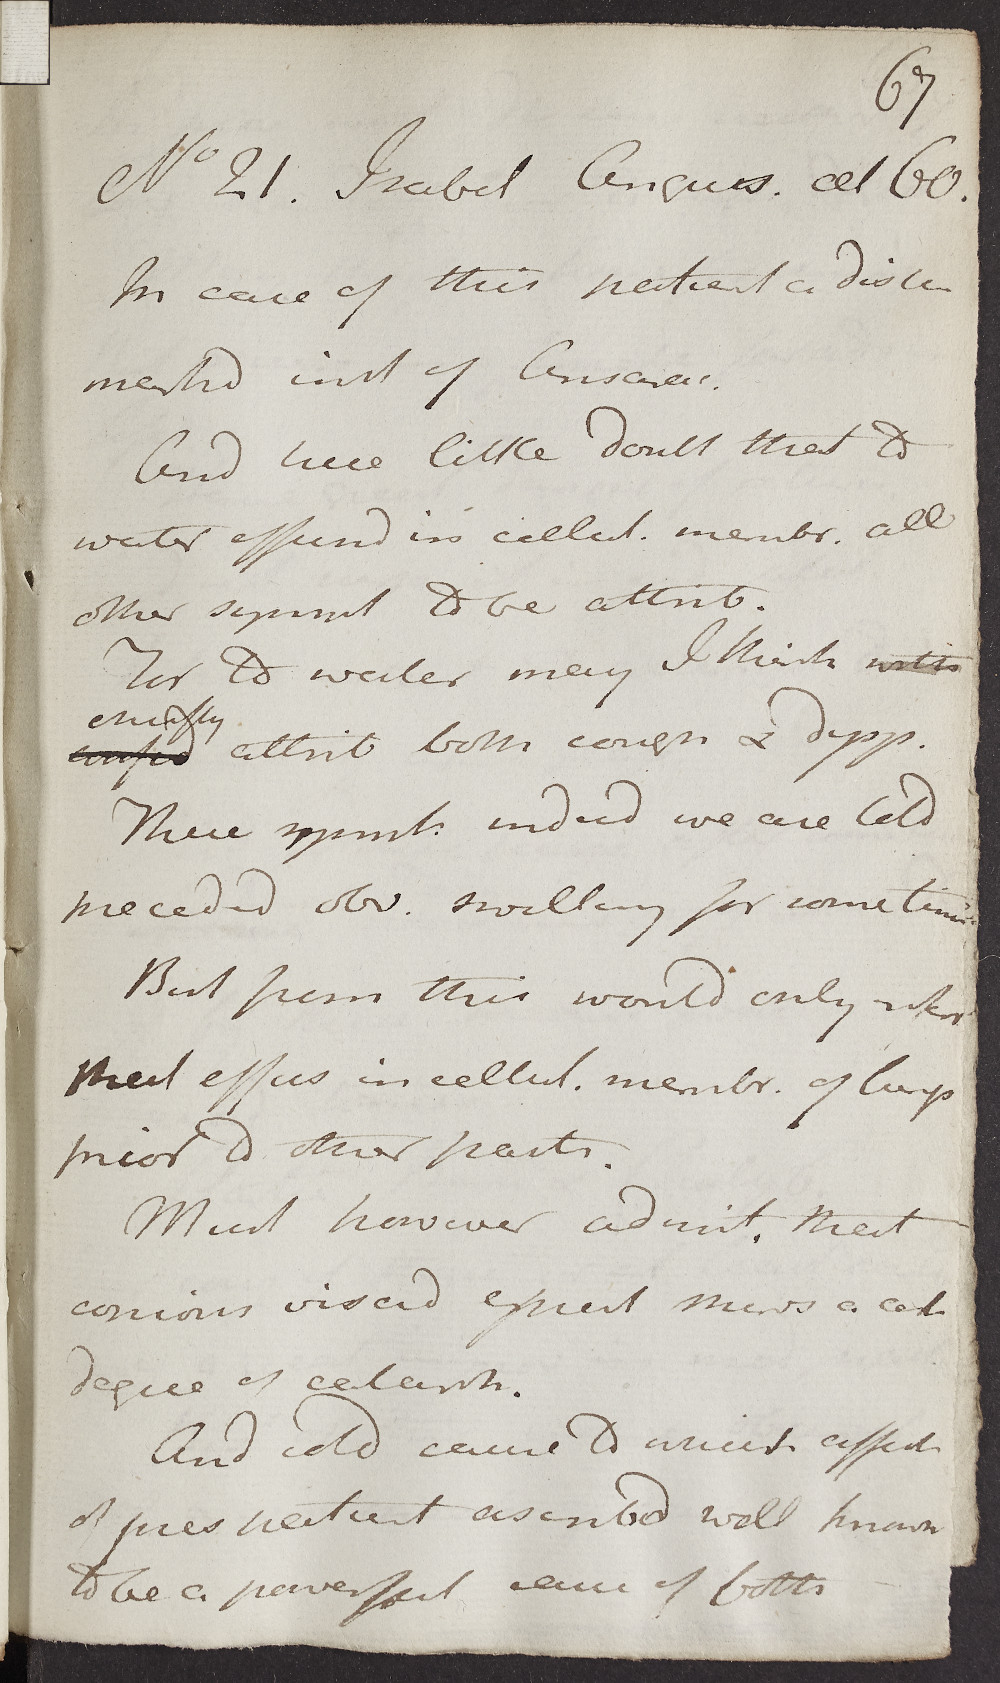 67
No 21. Isabel Angus. aet 60.
In case of this patient a distin
markd inst of Anasarca.
And here little doubt that to
water effusd in cellul. membr. all
other sympt to be attrib.
For to water may I think
chiefly
attrib both cough & dysp.
These sympt. indeed we are told
preceded obv. swelling for sometime
But from this would only infer
that effus in cellul. membr. of lungs
prior to other parts.
Must however admit. that
copious viscid expect shews a cert
degree of catarrh.
And cold cause to which affect
of pres patient ascribed well known
to be a powerful cause of both